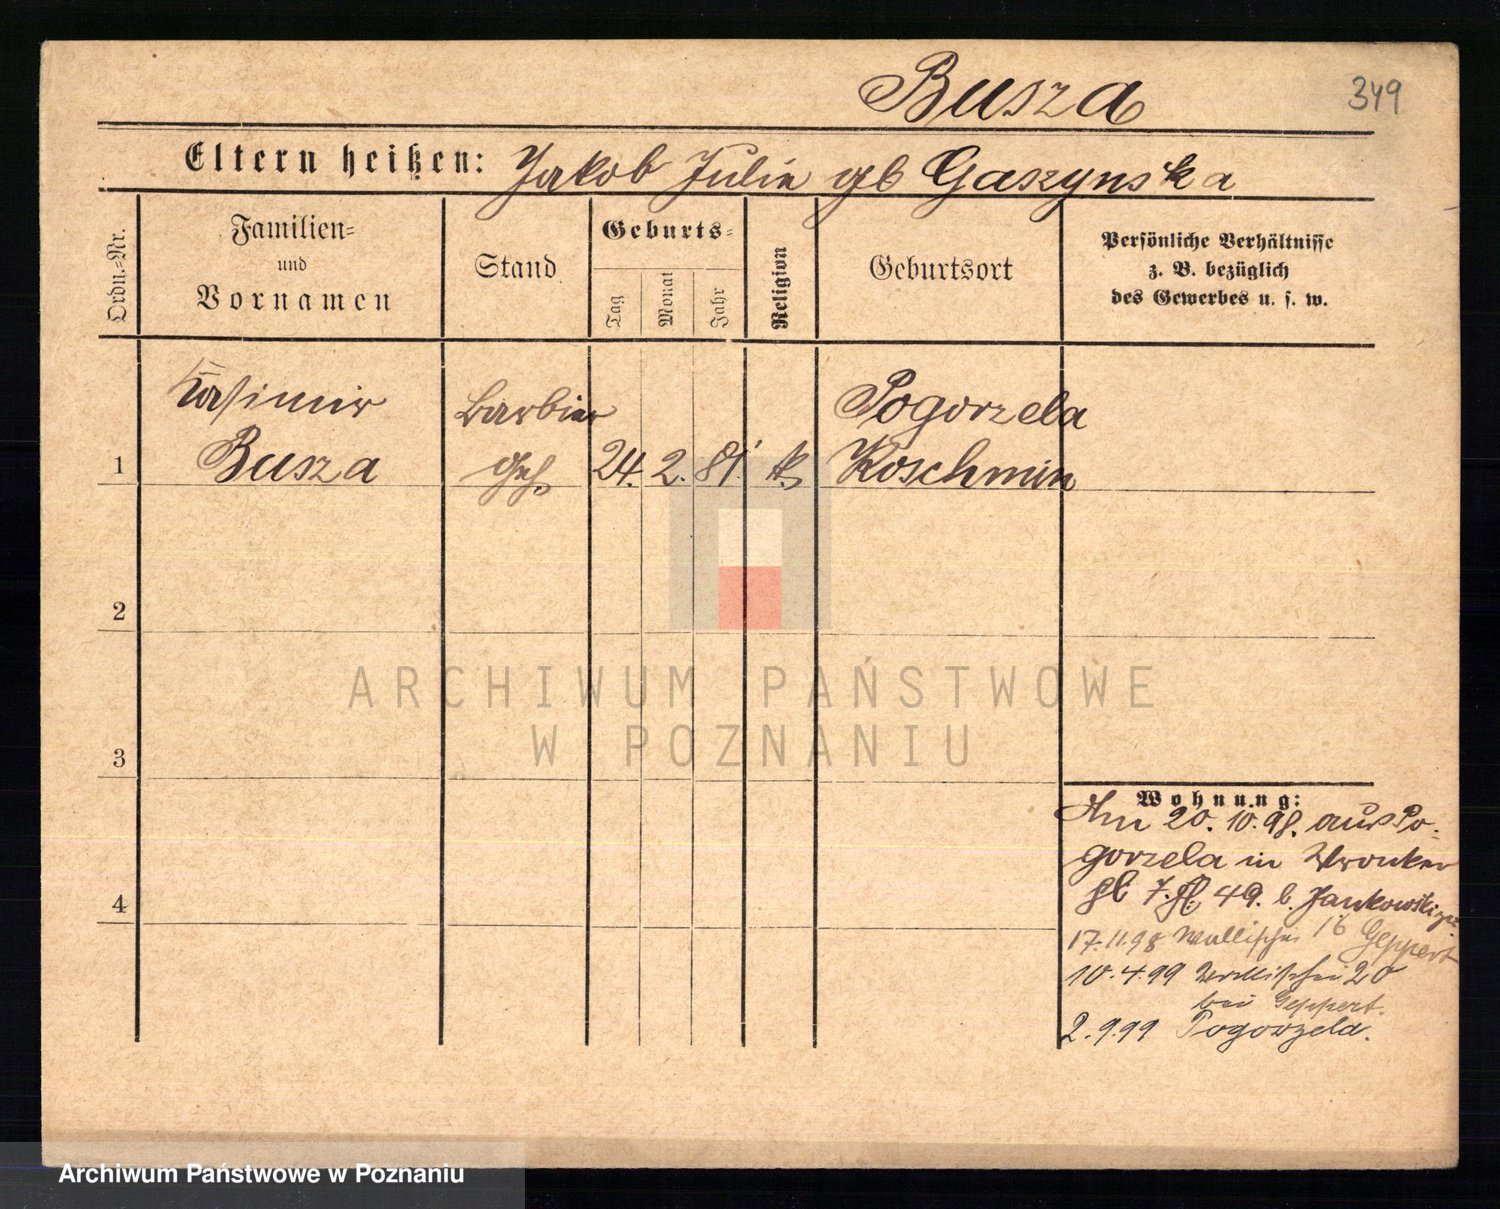 Busza
349
Eltern heißen: Jakob Julie gb Gaszynska
Ordn.-Nr.
Familien-
und
Vornamen
Stand
Geburts-
Tag
Monat
Jahr
Religion
Geburtsort
Persönliche Verhältnisse
z. B. bezüglich
des Gewerbes u. s. w.
Kasimir
Busza
Barbier
Geh.
1
24. 2. 81. k.
Pogorzela
Koschmin
2
3
4
Wohnung:
Am 20. 10. 98. aus Po-
gorzela in Wronker
7. 49. b. Jankowski
17.11.98 Wallischei 16 Geppert
10.4.99 Wallischei 20
bei Geppert.
2.9.99 Pogorzela.
ARCHIWUM PAŃSTWOWE
W POZNANIU
Archiwum Państwowe w Poznaniu